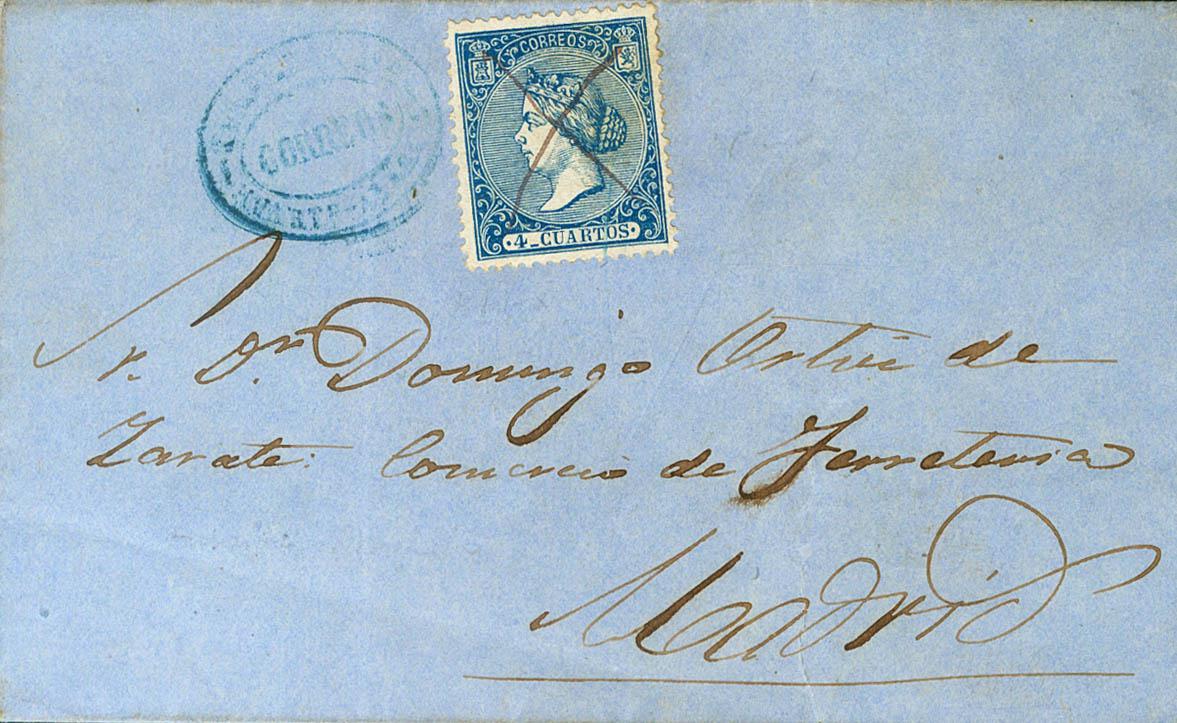 CORREOS
4_CUARTOS
r. Dn Domingo Ortiz de
Zarate: Comercio de Ferreteria
Madrid